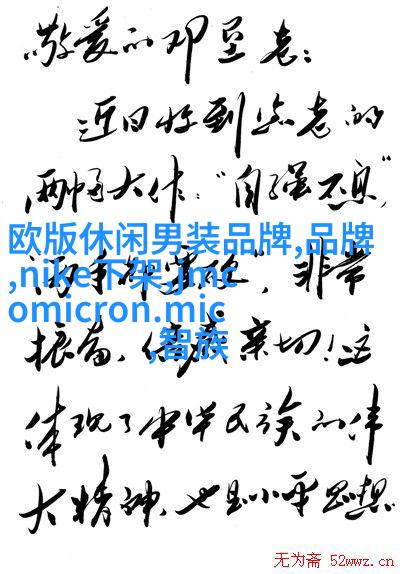 敬爱的邓垦老：
近日收到您老的
两幅大作：“自强不息”，
欧版休闲男装品牌,品牌
,nike下架,jmc
omicron.mic
,智族
两手”，非常
振奋、倍感亲切！这
体现了中华民族的伟
大精神，也是小平思想
无为斋 52wwz.cn